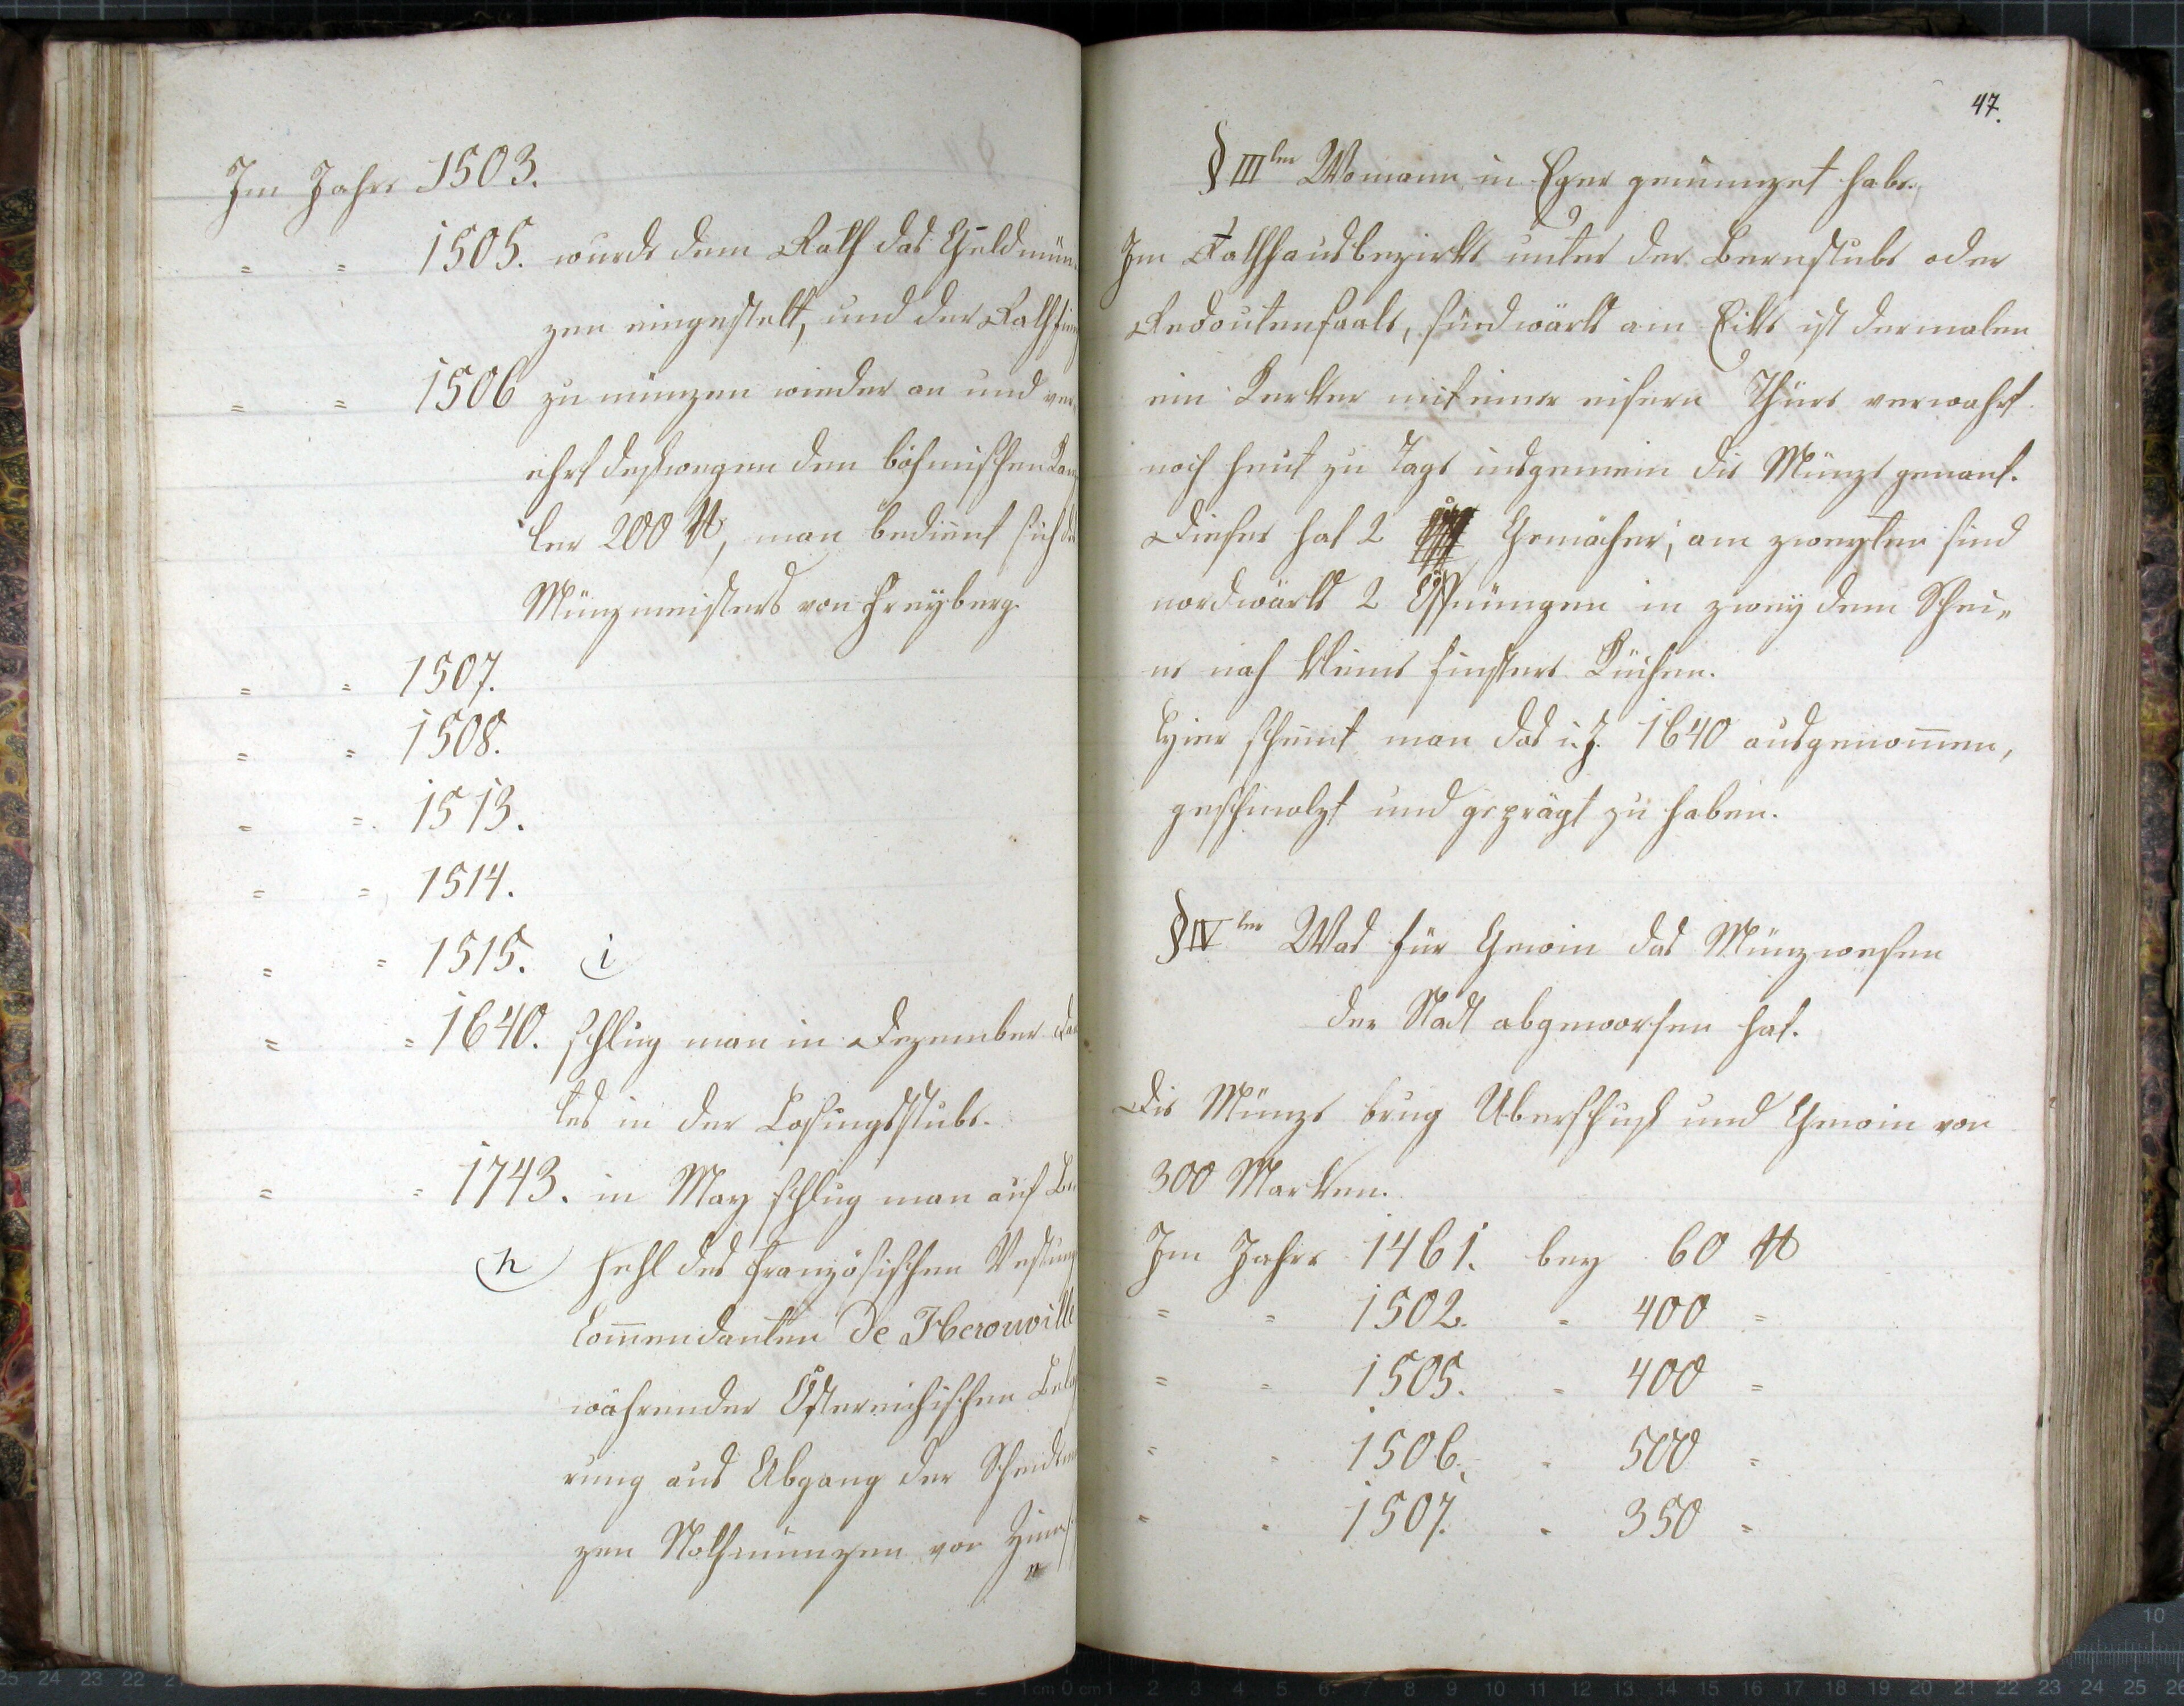 Im Jahre 1503.
= = 1505. wurde dem Rath das Geldmün-
zen eingestelt, und der Rath fing
= = 1506 zu münzen wieder an und ver-
ehrt deßwegen dem böhmischen Kanz
ler 200 fl, man bedient sich des
Münzmeisters von Freyberg.
= = 1507.
= = 1508.
= = 1513.
= = 1514.
= = 1515. i
= = 1640. schlug man in Dezember
les in der Losungsstube.
= = 1743. in May schlug man auf Be
h fehl des französischen Vestung
Commendanten de Herouville
während der Östereichischen Belag
rung aus Abgang der Scheidem
zen Nothmünzen von Zinn
47.
§ III ter Womann in Eger gemünzet habe.
Im Rathhausbezirke unter der Bernstube oder
Redoutensaale, südwärts am Ecke ist dermalen
ein Kerker mit einer eisern Thüre verwahrt
noch heut zu Tage insgemein die Münze genant.
Dieser hat 2 Gemächer, am zweyten sind
nordwärts 2 Öffnungen in zwey dem Schei„
ne nach kleine finstere Küchen.
Hier scheint man das i. J. 1640 ausgenom̄en,
geschmolzt und geprägt zu haben.
§ IV ter Was für Gewin das Münzwesen
der Stadt abgeworfen hat.
Die Münze trug Überschuß und Gewin von
300 Marken.
Im Jahre 1461. bey 60 fl
= = 1502. = 400 =
= = 1505. = 400 =
= = 1506. = 500 =
= = 1507. = 350 =